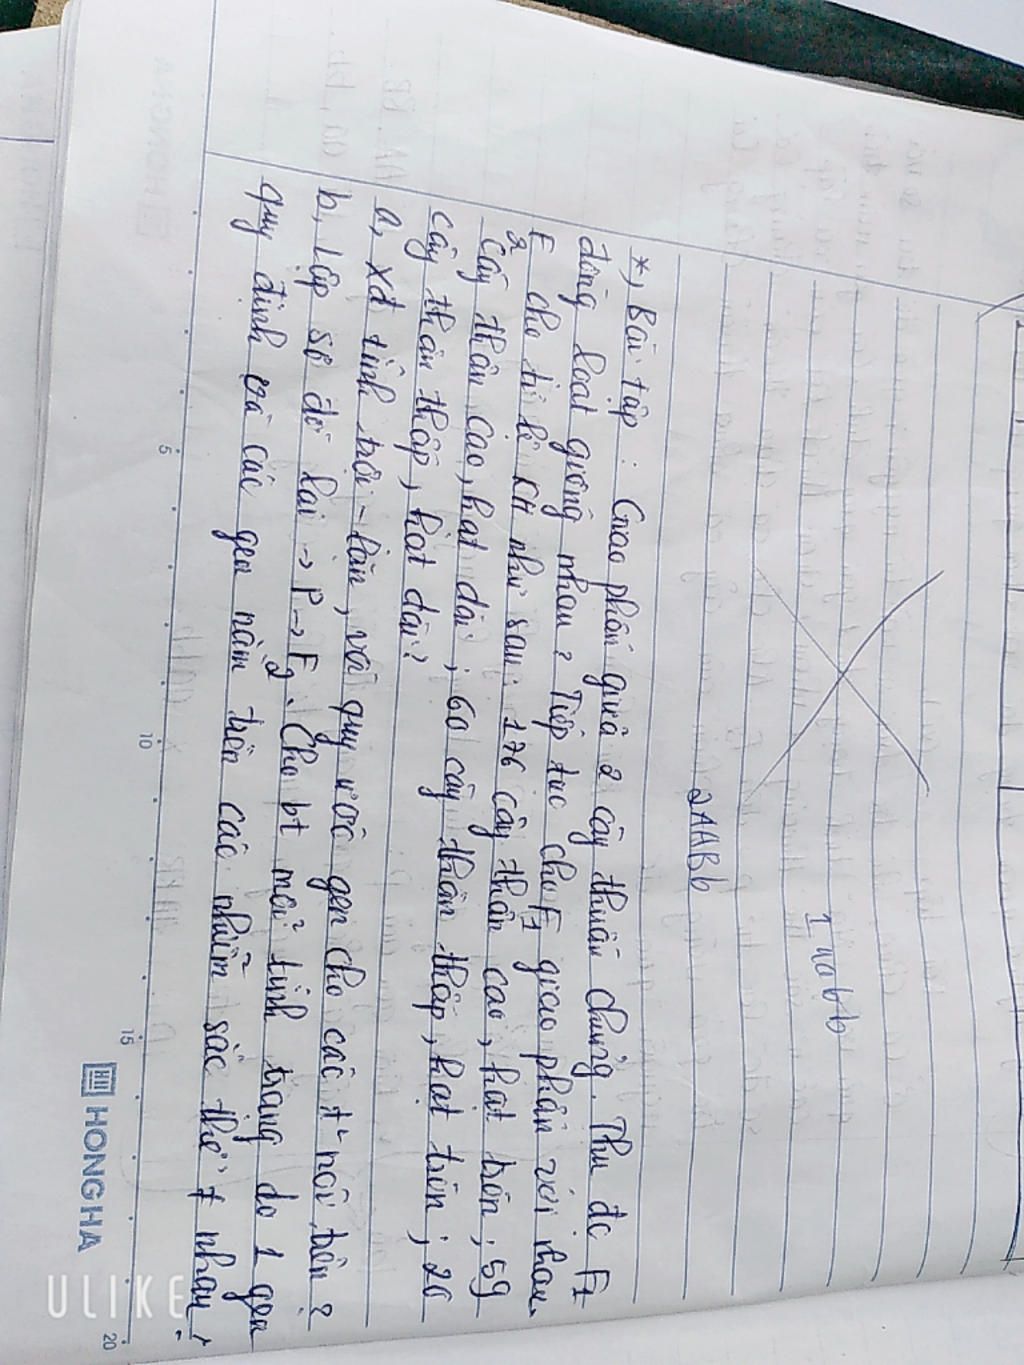 1 aabb
2AABb
*, Bài tập : Giao phấn giữa 2 cây thuần chủng. Thu đc F1
đồng loạt giống nhau ? Tiếp tục cho F1 giao phấn với nhau.
F2 cho tỉ lệ KH như sau : 176 cây thân cao, hạt tròn ; 59
cây thân cao, hạt dài ; 60 cây thân thấp, hạt tròn ; 20
cây thân thấp, hạt dài ?
a, xđ tính trội - lặn, và quy ước gen cho các t² nói trên ?
b, Lập sơ đồ lai -> P -> F2. Cho bt mỗi tính trạng do 1 gen
quy định và các gen nằm trên các nhiễm sắc thể ≠ nhau ?
5 10 15 20
HONG HA
ULIKE